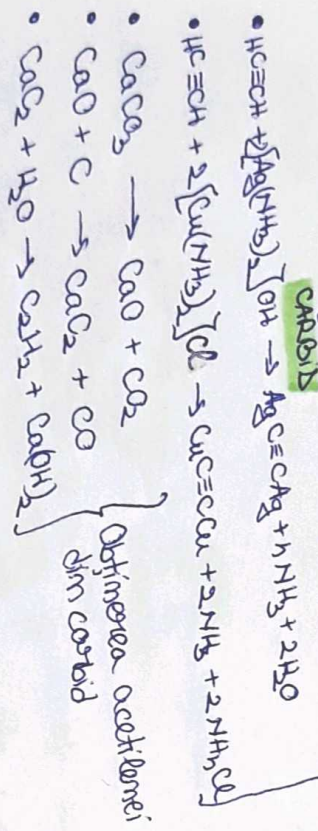 CARBID
• HC≡CH + 2[Ag(NH₃)₂]OH → AgC≡CAg + 4NH₃ + 2H₂O
• HC≡CH + 2[Cu(NH₃)₂]Cl → CuC≡CCu + 2NH₃ + 2NH₄Cl
• CaCO₃ → CaO + CO₂
• CaO + C → CaC₂ + CO
• CaC₂ + H₂O → C₂H₂ + Ca(OH)₂
Obținerea acetilenei
din carbid